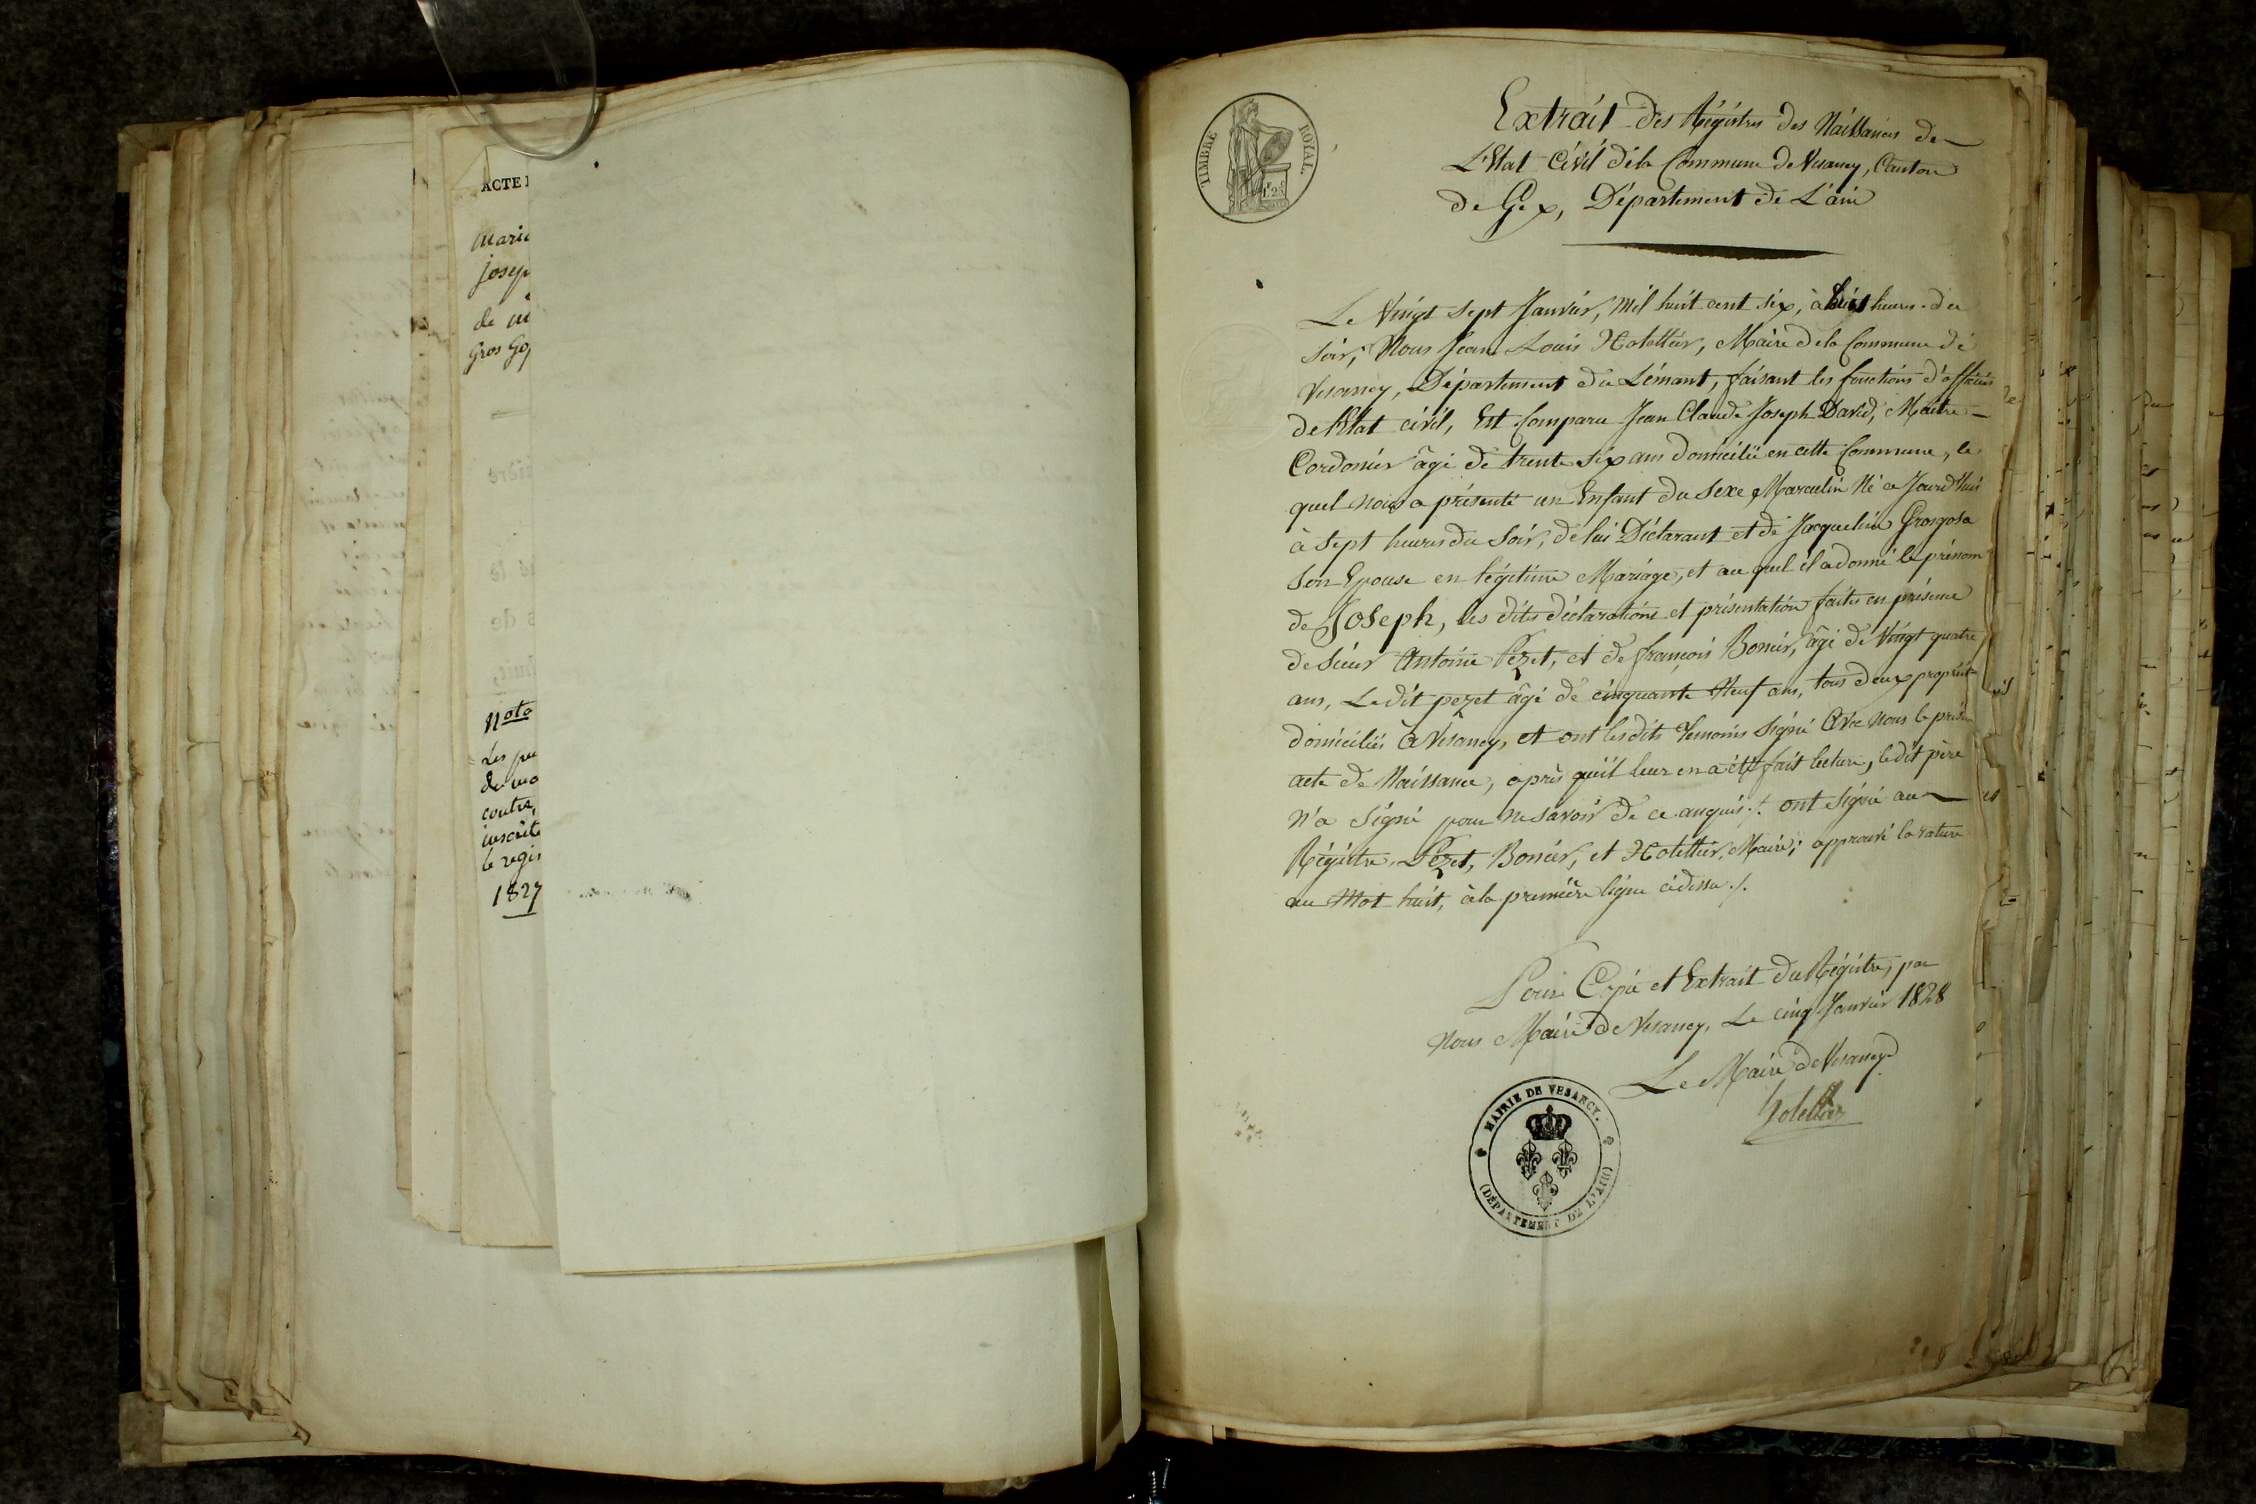 ACTE
Marie
Josep
de
Gros Go
Nota
Les
de
contre,
inscrite
le regis
1827
TIMBRE ROYAL.
Extrait des Régistres des Naissances de
L'Etat Civil dela Commune de Vesancy, Canton
de Gex, Département de L'ain
Le Vingt Sept Janvier, mil huit cent six, à huit heures du
Soir, Nous Jean Louis Hotellier, Maire dela Commune de
Vesancy, Département du Lémant, faisant les fonctions d'officier
de l'Etat civil, Est Comparu Jean Claude Joseph David, Maitre
Cordonier âgé de trente six ans domicilié en cette Commune, le
quel nous a présenté un Enfant du Sexe Masculin Né ce Jourd'hui
à Sept heures du Soir, de lui Déclarant et de Jacqueline Grosgosa
Son Epouse en légitime Mariage, et au quel il a donné le prénom
de Joseph, les dites déclarations et présentation faites en présence
de Sieur Antoine Pezet, et de françois Bonier, âgé de Vingt quatre
ans, Le dit pezet âgé de cinquante Neuf ans, tous deux propriét
domiciliés à Vesancy, et ont lesdits Temoins Signé Avec Nous le présen
acte de Naissance, après qu'il leur en a été fait lecture, ledit père
n'a Signé pour ne Savoir de ce anquis ./. ont Signé au
Régistre, Pezet, Bonier, et Hotellier, Maire; approuvé la rature
au Mot huit, à la première ligne cidessu ./.
Pour Copie et Extrait du Régistre, par
Nous Maire de Vesancy, Le cinq Janvier 1828
Le Maire de Vesancy
hotellier
MAIRIE DE VESANCY.
(DÉPARTEMENT DE L'AIN)